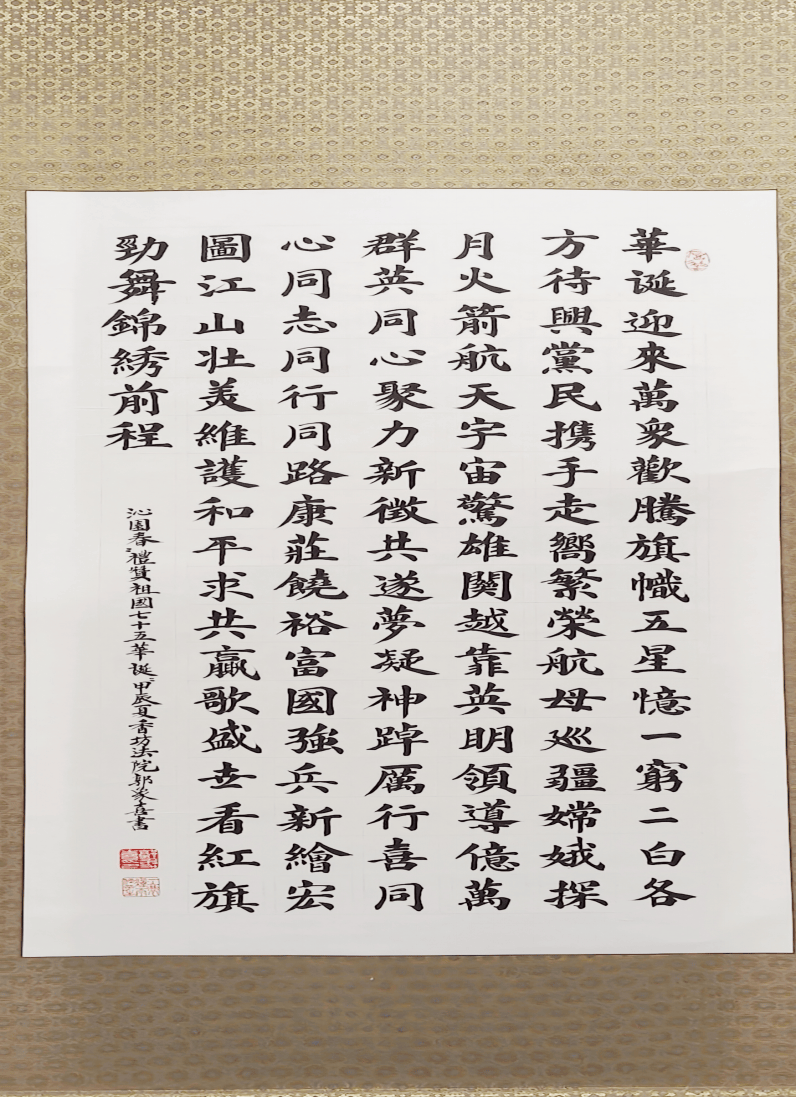 華誕迎來萬衆歡騰旗幟五星憶一窮二白各
方待興黨民携手走嚮繁榮航母巡疆嫦娥探
月火箭航天宇宙驚雄關越靠英明領導億萬
群英同心聚力新徵共遂夢凝神踔厲行喜同
心同志同行同路康莊饒裕富國強兵新繪宏
圖江山壯美維護和平求共贏歌盛世看紅旗
勁舞錦綉前程
沁園春禮贊祖國七十五華誕甲辰夏香坊法院郭家喜書